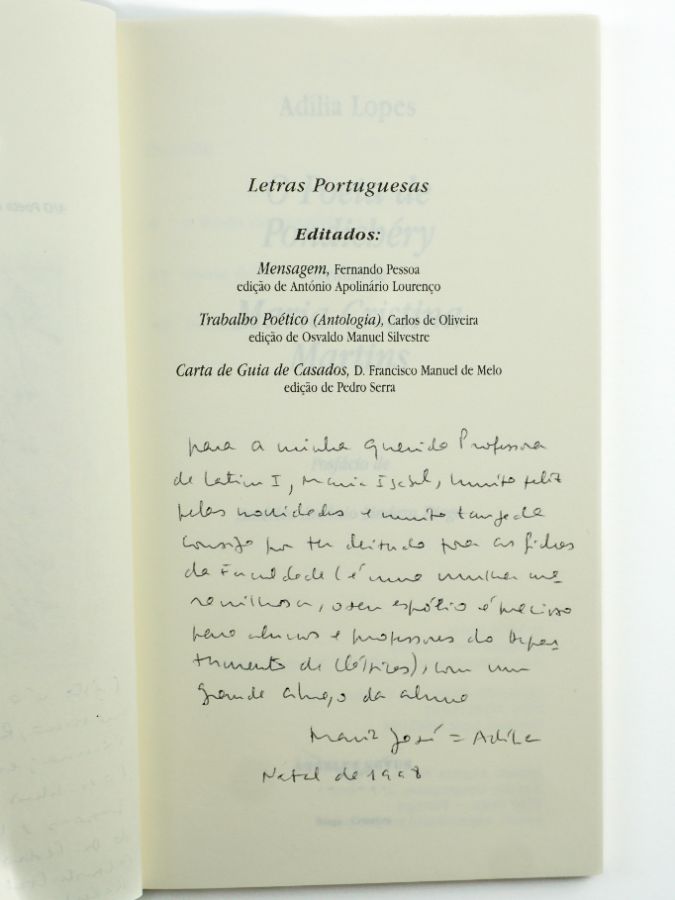 Adília Lopes
Letras Portuguesas
O Poeta de
Pondichéry
Editados:
Mensagem, Fernando Pessoa
edição de António Apolinário Lourenço
Maria Cristina
Martins
Trabalho Poético (Antologia), Carlos de Oliveira
edição de Osvaldo Manuel Silvestre
Carta de Guia de Casados, D. Francisco Manuel de Melo
edição de Pedro Serra
para a minha querida Professora
de Latim I, Maria Isabel, muito feliz
pelas novidades e muito
consigo por ter deitado fora as fichas
da Faculdade (é uma mulher ma-
ravilhosa, o seu espólio é precioso
para alunos e professores do Depar-
tamento de Clássicas), com um
grande abraço da aluna
Maria José = Adília
Natal de 1998